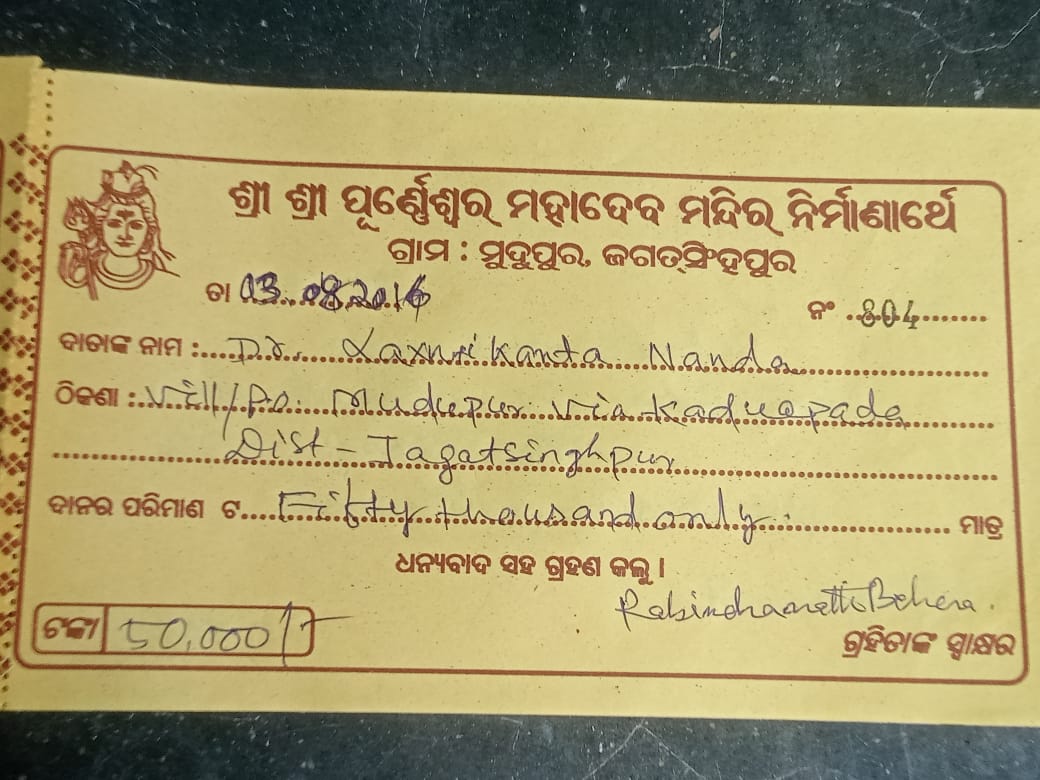 ଶ୍ରୀ ଶ୍ରୀ ପୂର୍ଣ୍ଣେଶ୍ୱର ମହାଦେବ ମନ୍ଦିର ନିର୍ମାଣାର୍ଥେ
ଗ୍ରାମ : ମୁଦୁପୁର, ଜଗତ୍‌ସିଂହପୁର
ତା 03.08.2016 ନଂ 804
ଦାତାଙ୍କ ନାମ : Dr. Laxmikanta Nanda
ଠିକଣା : Vill/Po. Mudupur Via Kaduapada
Dist - Jagatsinghpur
ଦାନର ପରିମାଣ ଟ Fifty thousand only ମାତ୍ର
ଧନ୍ୟବାଦ ସହ ଗ୍ରହଣ କଲୁ ।
Behera
ଟଙ୍କା 50,000/-
ଗ୍ରହିତାଙ୍କ ସ୍ୱାକ୍ଷର